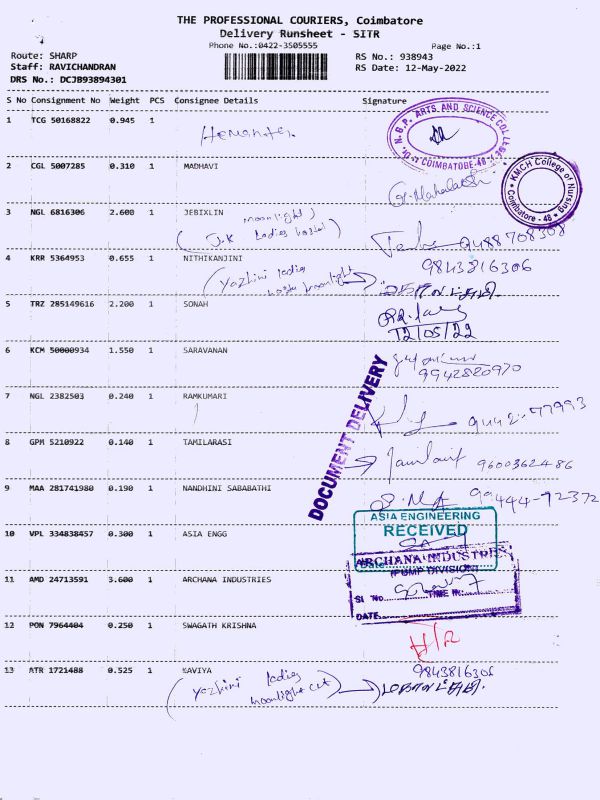 THE PROFESSIONAL COURIERS, Coimbatore
Delivery Runsheet - SITR
Phone No.:0422-3505555 Page No.:1
Route: SHARP RS No.: 938943
Staff: RAVICHANDRAN RS Date: 12-May-2022
DRS No.: DCJB93894301
S No Consignment No Weight PCS Consignee Details Signature
1 TCG 50168822 0.945 1
N.G.P. ARTS AND SCIENCE COLLEGE
COIMBATORE-48
2 CGL 5007285 0.310 1 MADHAVI
KMCH College of Nursing
Coimbatore - 48
3 NGL 6816306 2.600 1 JEBIXLIN
moonlight)
(J.K ladies hostel)
9488708308
4 KRR 5364953 0.655 1 NITHIKANJINI
9843816306
(Yazhini ladies
moonlight
5 TRZ 285149616 2.200 1 SONAH
12/05/22
6 KCM 50000934 1.550 1 SARAVANAN
9942820970
7 NGL 2382503 0.240 1 RAMKUMARI
DOCUMENT DELIVERY
8 GPM 5210922 0.140 1 TAMILARASI
9600362486
9 MAA 281741980 0.190 1 NANDHINI SABABATHI
99444-72372
ASIA ENGINEERING
RECEIVED
10 VPL 334838457 0.300 1 ASIA ENGG
Date
ARCHANA INDUSTRIES
(PUMP DIVISION)
11 AMD 24713591 3.600 1 ARCHANA INDUSTRIES
SI No. TIME IN
DATE
12 PON 7964404 0.250 1 SWAGATH KRISHNA
13 ATR 1721488 0.525 1 KAVIYA
9843816306
(Yazhini ladies
moonlight